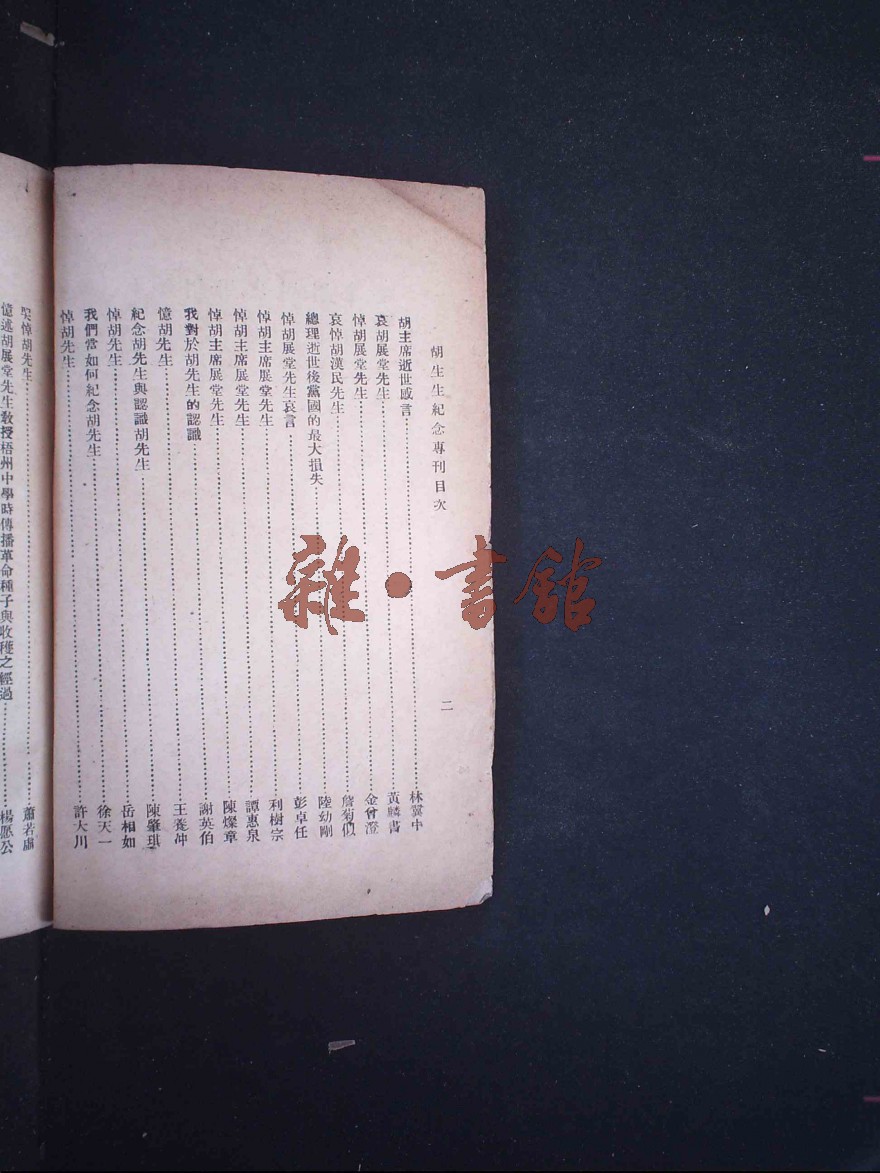 胡生生紀念專刊目次
二
胡主席逝世感言……林翼中
哀胡展堂先生……黃麟書
悼胡展堂先生……金曾澄
哀悼胡漢民先生……詹菊似
總理逝世後黨國的最大損失……陸幼剛
悼胡展堂先生哀言……彭卓任
悼胡主席展堂先生……利樹宗
悼胡主席展堂先生……譚惠泉
悼胡主席展堂先生……陳燦章
我對於胡先生的認識……謝英伯
憶胡先生……王養冲
紀念胡先生與認識胡先生……陳肇琪
悼胡先生……岳相如
我們當如何紀念胡先生……徐天一
悼胡先生……許大川
哭悼胡先生……蕭若虛
憶述胡展堂先生教授梧州中學時傳播革命種子與收穫之經過……楊愿公
雜·書館